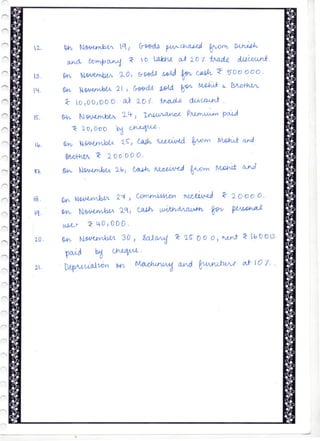 12. On November 19, Goods purchased from Dinesh
and Company ₹ 10 lakhs at 20% trade discount.
13. On November 20, Goods sold for cash ₹ 500000.
14. On November 21, Goods sold for Mohit & Brother
₹ 10,00,000 at 20% trade discount.
15. On November 24, Insurance Premium paid
₹ 20,000 by cheque.
16. On November 25, Cash received from Mohit and
Brother ₹ 200000.
17. On November 26, Cash received from Mohit and
18. On November 27, Commission received ₹ 20000.
19. On November 29, Cash withdrawn for personal
use ₹ 40,000.
20. On November 30, Salary ₹ 25000, rent ₹ 16000
paid by cheque.
21. Depreciation on Machinery and furniture at 10%.